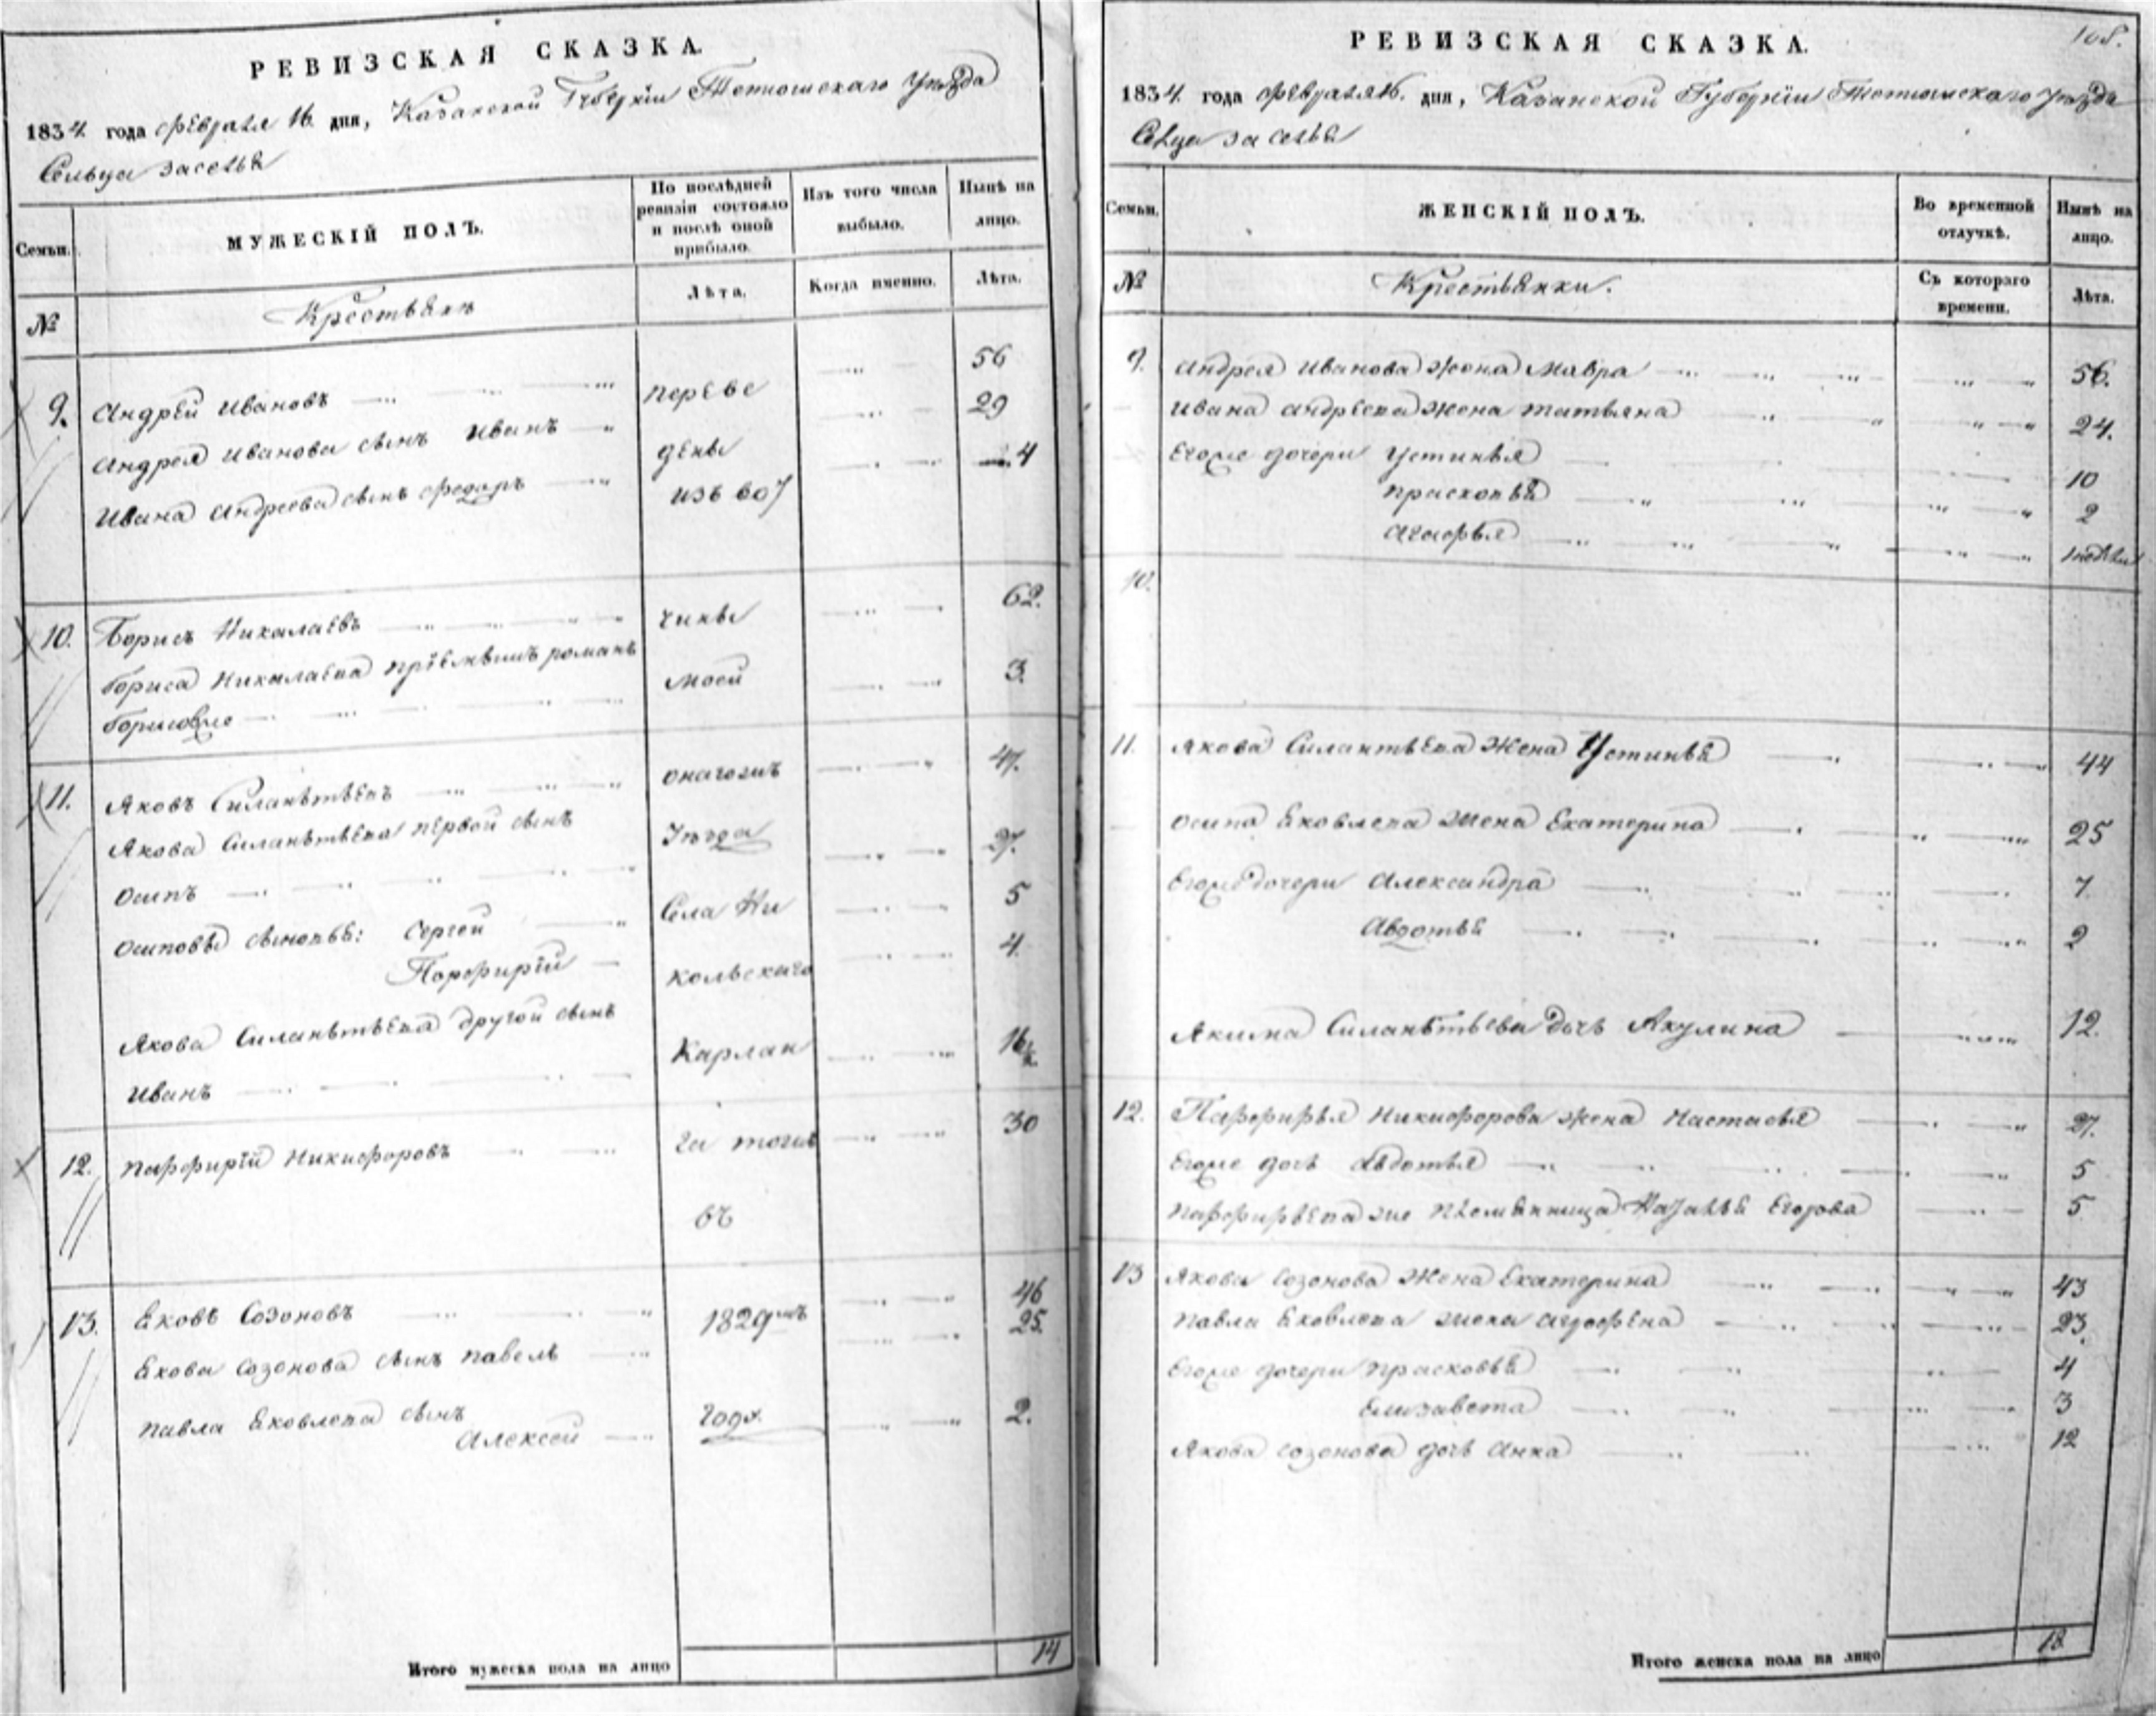 РЕВИЗСКАЯ СКАЗКА.
1834 года февраля 16 дня, Казанской Губернїи Тетюшскаго уѣзда
Сельца заселья
Семьи.
МУЖЕСКІЙ ПОЛЪ.
По послѣдней ревизіи состояло и послѣ оной прибыло.
Изъ того числа выбыло.
Нынѣ на лицо.
№
Крестьянъ
Лѣта.
Когда именно.
Лѣта.
9. Андрей Ивановъ переве 56
Андрея Иванова сынъ Иванъ дены 29
Ивана Андреева сынъ Федоръ изъ вот 4
10. Борисъ Николаевъ чины 62.
Бориса Николаева прїемышъ романъ моей 3.
Борисовже
11. Яковъ Силантьевъ 47.
Якова Силантьева первой сынъ Уѣзда
Осипъ 27.
Осиповы сыновья: Сергей Села Ни 5
Порфирїй кольскаго 4.
Якова Силантьева другой сынъ Карлан
Иванъ 16½
12. Парфирїй Никифоровъ га тогиъ 30
въ
13. Яковъ Созоновъ 1829мъ 46
Якова Созонова сынъ павелъ 25.
Павла Яковлева сынъ Году. 2.
Алексей
Итого мужеска пола на лицо 14
РЕВИЗСКАЯ СКАЗКА.
168.
1834 года февраля 16. дня, Казанской Губернїи Тетюшскаго уѣзда
Сельца заселья
Семьи.
ЖЕНСКІЙ ПОЛЪ.
Во временной отлучкѣ.
Нынѣ на лицо.
№
Крестьянки.
Съ котораго времени.
Лѣта.
9. Андрея Иванова жена Мавра 56.
Ивана Андреева жена татьяна 24.
Егоже дочери Устинья 10
Прасковья 2
Агафья 1 недѣли
10.
11. Якова Силантьева жена Устинья 44
Осипа Яковлева жена Екатерина 25
Егоже дочери Александра 7
Авдотья 2
Якима Силантьева дочь Акулина 12.
12. Парфирья Никифорова жена Настасья 27.
Егоже дочь Авдотья 5
Парфирьева же племянница Наталья Егорова 5
13 Якова Созонова жена Екатерина 43
Павла Яковлева жена Аграфена 23.
Егоже дочери прасковья 4
Елизавета 3
Якова Созонова дочь Анна 12
Итого женска пола на лицо 18